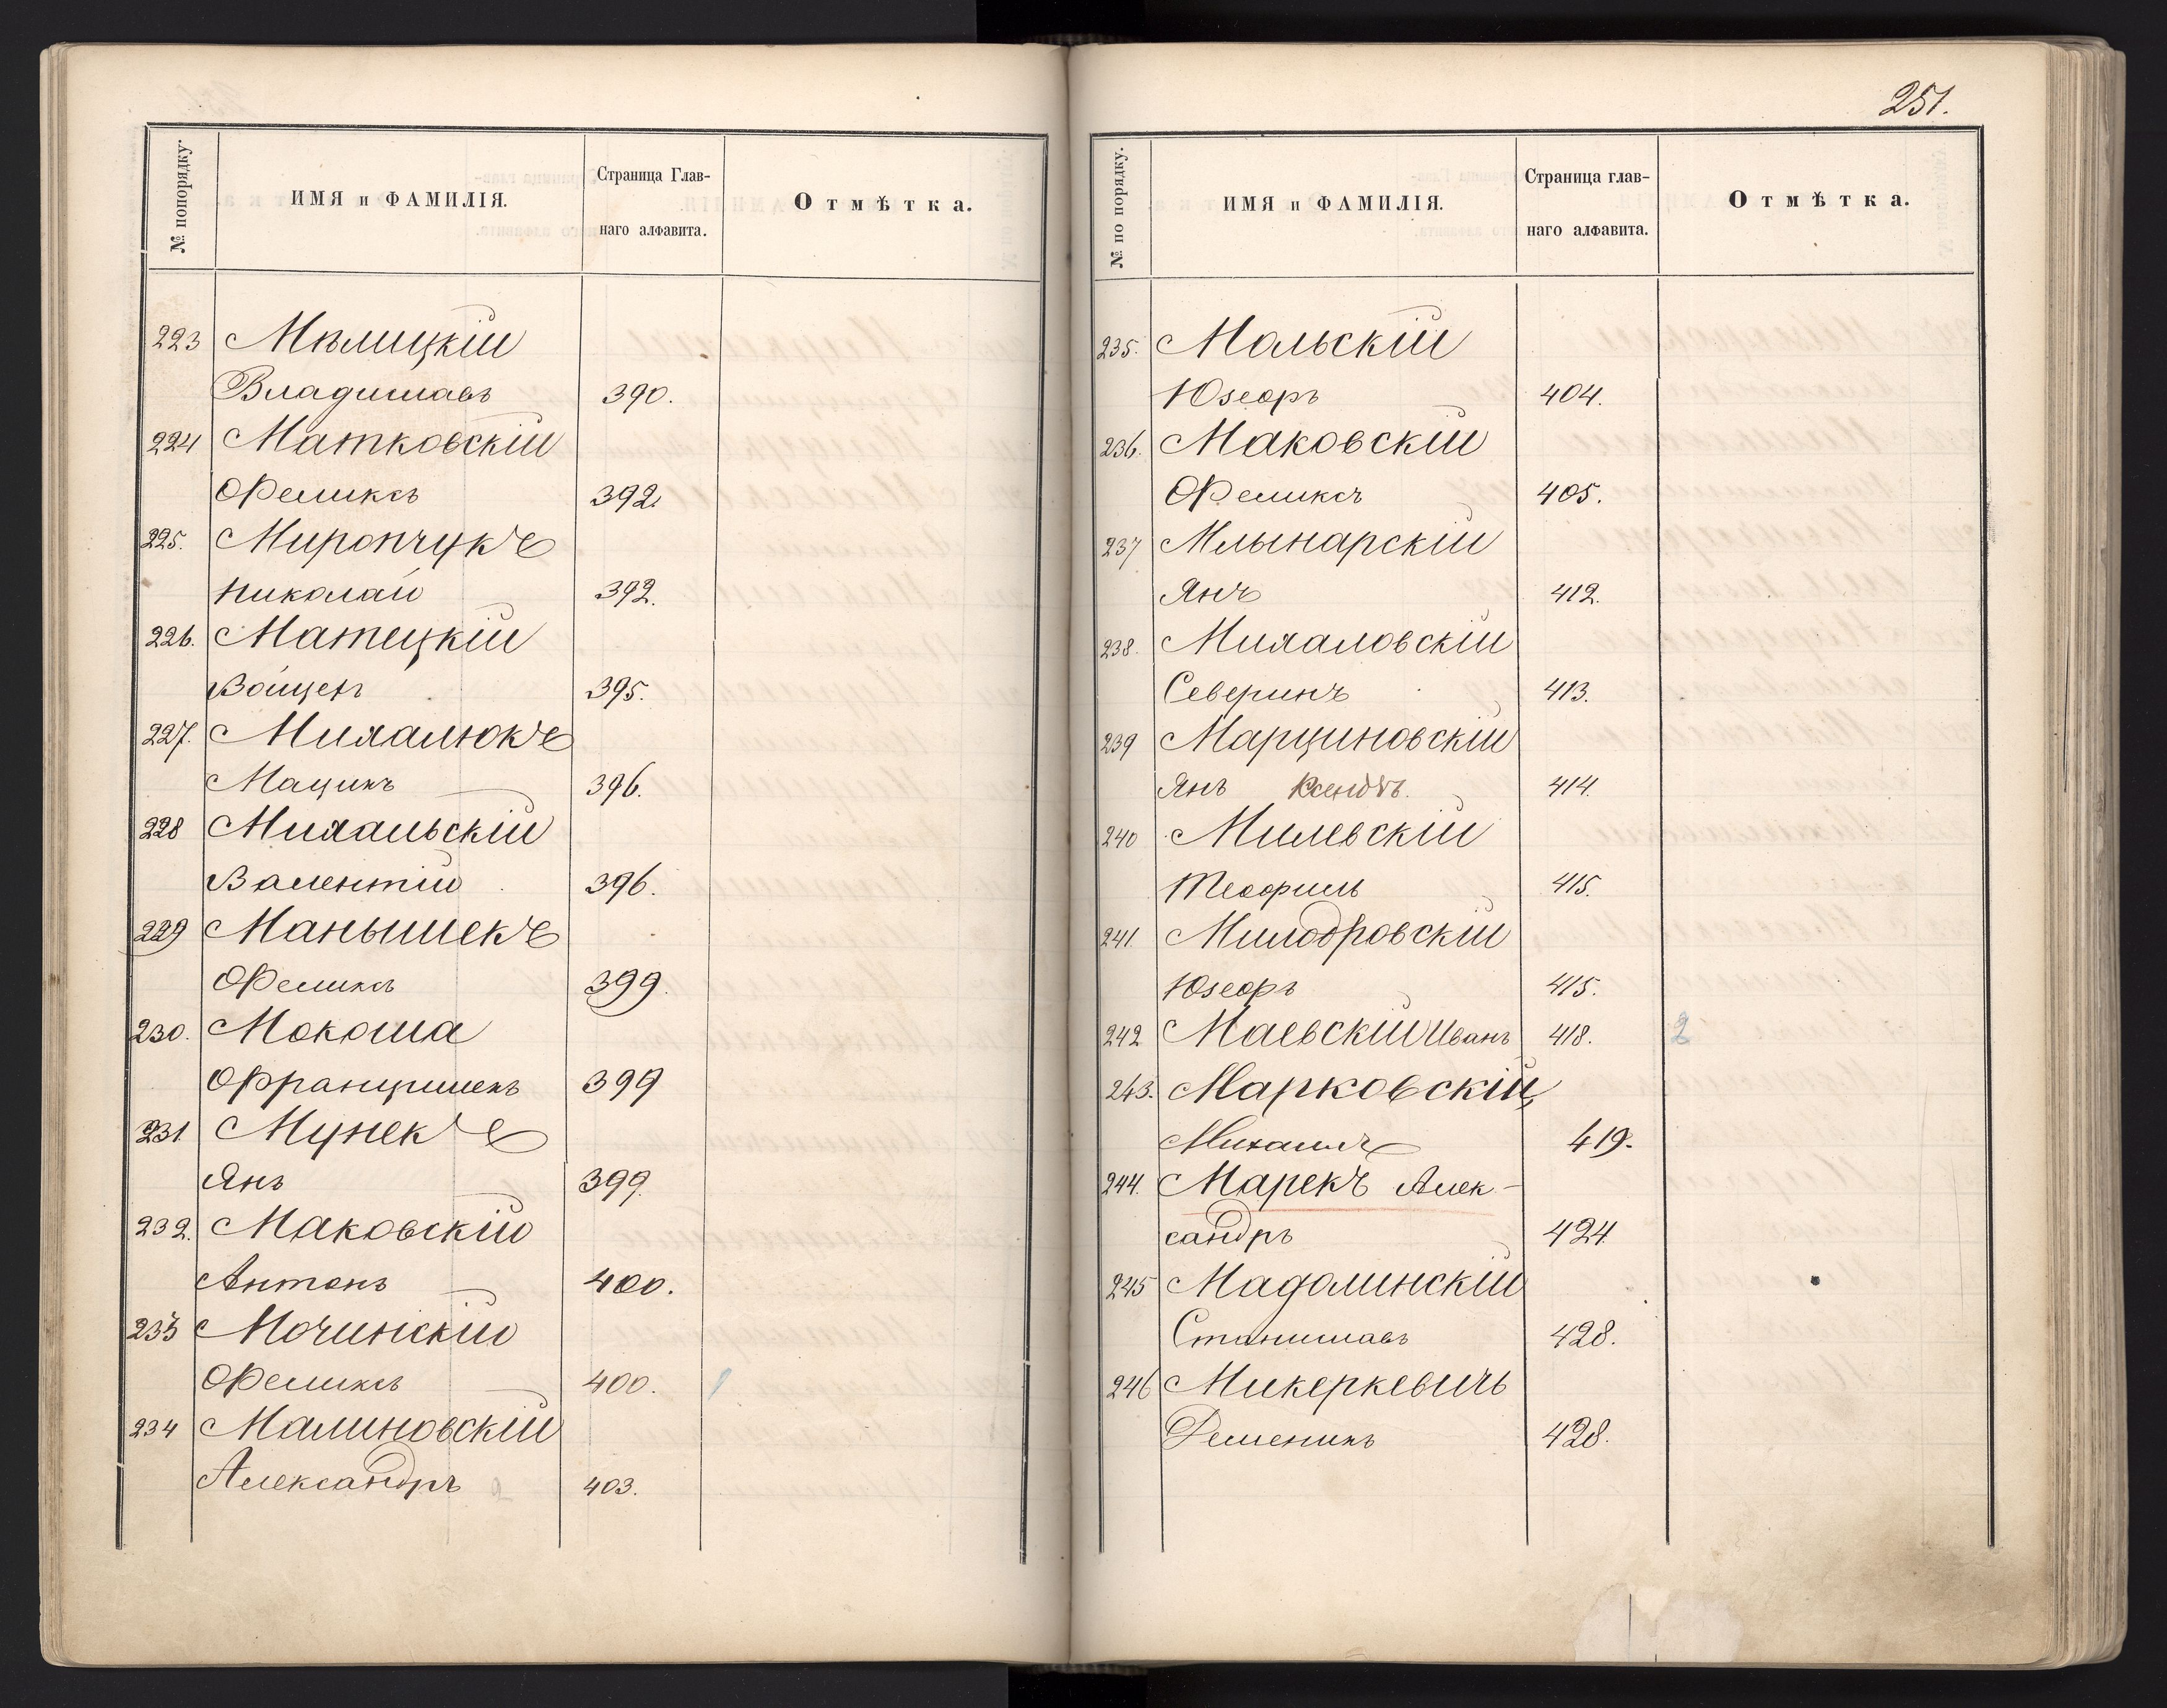 № попорядку.
ИМЯ и ФАМИЛІЯ.
Страница Глав-
наго алфавита.
Отмѣтка.
223 Мѣлицкій
Владиславъ 390.
224 Матковскій
Феликсъ 392.
225. Мирончукъ
Николай 392.
226. Матецкій
Войцех 395.
227. Михалюкъ
Мацикъ 396.
228 Михальскій
Валентій 396.
229 Манышекъ
Феликсъ 399.
230. Мокоша
Францишекъ 399
231. Мунекъ
Янъ 399.
232. Маковскій
Антонъ 400.
233 Мочинскій
Феликсъ 400. 1
234 Малиновскій
Александръ 403.
251.
№ по порядку.
ИМЯ и ФАМИЛІЯ.
Страница глав-
наго алфавита.
Отмѣтка.
235. Мальскій
Юзефъ 404.
236. Маковскій
Феликсъ 405.
237 Млынарскій
Янъ 412.
238. Михаловскій
Северинъ 413.
239 Марциновскій
Янъ Ксендзъ. 414.
240 Милевскій
Теофиль 415.
241. Милобровскій
Юзефъ 415.
242 Маевскій Иванъ 418. 2
243. Марковскій,
Михаилъ 419.
244. Марекъ Алек-
сандръ 424
245 Мадалинскій
Станиславъ 428.
246 Микеркевичъ
428.